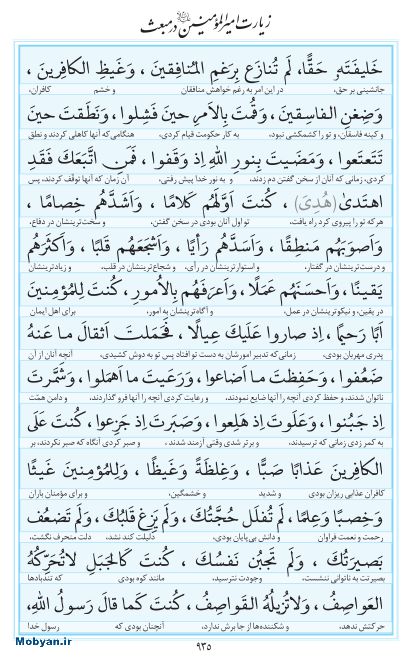 زیارت امیرالمؤمنین در مبعث
خَلیفَتَهُ حَقًّا، لَمْ تُنازَعْ بِرَغْمِ الْمُنافِقینَ، وَغَیْظِ الْکافِرینَ،
جانشینی بر حق، در این امر به رغم خواهش منافقان و خشم کافران،
وَضِغْنِ الْفاسِقینَ، وَقُمْتَ بِالْاَمْرِ حینَ فَشِلُوا، وَنَطَقْتَ حینَ
و کینه فاسقان، و تو را کشمکشی نبود، به کار حکومت قیام کردی، هنگامی‌که آنها کاهلی کردند و نطق
تَتَعْتَعُوا، وَمَضَیْتَ بِنُورِ اللّٰهِ اِذْ وَقَفُوا، فَمَنِ اتَّبَعَکَ فَقَدِ
کردی، زمانی که آنان از سخن گفتن دم زدند، و به نور خدا پیش رفتی، آن زمان که آنها توقف کردند، پس
اهْتَدیٰ (هُدِیَ)، کُنْتَ اَوَّلَهُمْ کَلامًا، وَاَشَدَّهُمْ خِصامًا،
هرکه تو را پیروی کرد راه یافت، تو اول آنان بودی در سخن گفتن، و سخت‌ترینشان در دفاع،
وَاَصْوَبَهُمْ مَنْطِقًا، وَاَسَدَّهُمْ رَأْیًا، وَاَشْجَعَهُمْ قَلْبًا، وَاَکْثَرَهُمْ
و درست‌ترینشان در گفتار، و استوارترینشان در رأی، و شجاع‌ترینشان در قلب، و زیادترینشان
یَقینًا، وَاَحْسَنَهُمْ عَمَلًا، وَاَعْرَفَهُمْ بِالْاُمُورِ، کُنْتَ لِلْمُؤْمِنینَ
در یقین، و نیکوترینشان در عمل، و آگاه‌ترینشان به امور، برای اهل ایمان
اَبًا رَحیمًا، اِذْ صارُوا عَلَیْکَ عِیالًا، فَحَمَلْتَ اَثْقالَ ما عَنْهُ
پدری مهربان بودی، زمانی‌که تدبیر امورشان به دست تو افتاد پس تو به دوش کشیدی، آنچه آنان از آن
ضَعُفُوا، وَحَفِظْتَ ما اَضاعُوا، وَرَعَیْتَ ما اَهْمَلُوا، وَشَمَّرْتَ
ناتوان شدند، و حفظ کردی آنچه را آنها ضایع نمودند، و رعایت کردی آنچه را آنها فرو گذاردند، و دامن همّت
اِذْ جَبُنُوا، وَعَلَوْتَ اِذْ هَلِعُوا، وَصَبَرْتَ اِذْ جَزِعُوا، کُنْتَ عَلَی
به کمر زدی زمانی که ترسیدند، و برتر شدی وقتی آزمند شدند، و صبر کردی آنگاه که صبر نکردند، بر
الْکافِرینَ عَذابًا صَبًّا، وَغِلْظَةً وَغَیْظًا، وَلِلْمُؤْمِنینَ غَیْثًا
کافران عذابی ریزان بودی و شدید و خشمگین، و برای مؤمنان باران
وَخِصْبًا وَعِلْمًا، لَمْ تُفْلَلْ حُجَّتُکَ، وَلَمْ یَزِغْ قَلْبُکَ، وَلَمْ تَضْعُفْ
رحمت و نعمت فراوان و دانش بی‌پایان بودی، دلیلت کند نشد، دلت منحرف نگشت،
بَصیرَتُکَ، وَلَمْ تَجْبُنْ نَفْسُکَ، کُنْتَ کَالْجَبَلِ لا تُحَرِّکُهُ
بصیرتت به ناتوانی ننشست، وجودت نترسید، مانند کوه بودی که تندبادها
الْعَواصِفُ، وَلا تُزیلُهُ الْقَواصِفُ، کُنْتَ کَما قالَ رَسُولُ اللّٰهِ،
حرکتش ندهد، و شکننده‌ها از جا برش ندارد، آنچنان بودی که رسول خدا
Mobyan.ir
۹۳۵